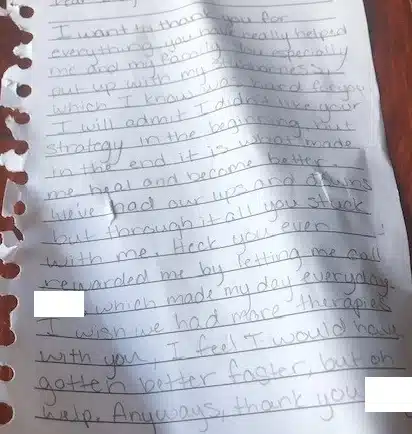 I want to thank you for
everything you have really helped
me and my family, but especially
put up with my
which I know was hard for you
I will admit I didn't like your
strategy in the beginning, but
in the end it is what made
me heal and become better.
We've had our ups and downs
but through it all you stuck
with me. Heck you even
rewarded me by letting me call
which made my day everyday.
I wish we had more therapies
with you, I feel I would have
gotten better faster, but oh
help. Anyways, thank you